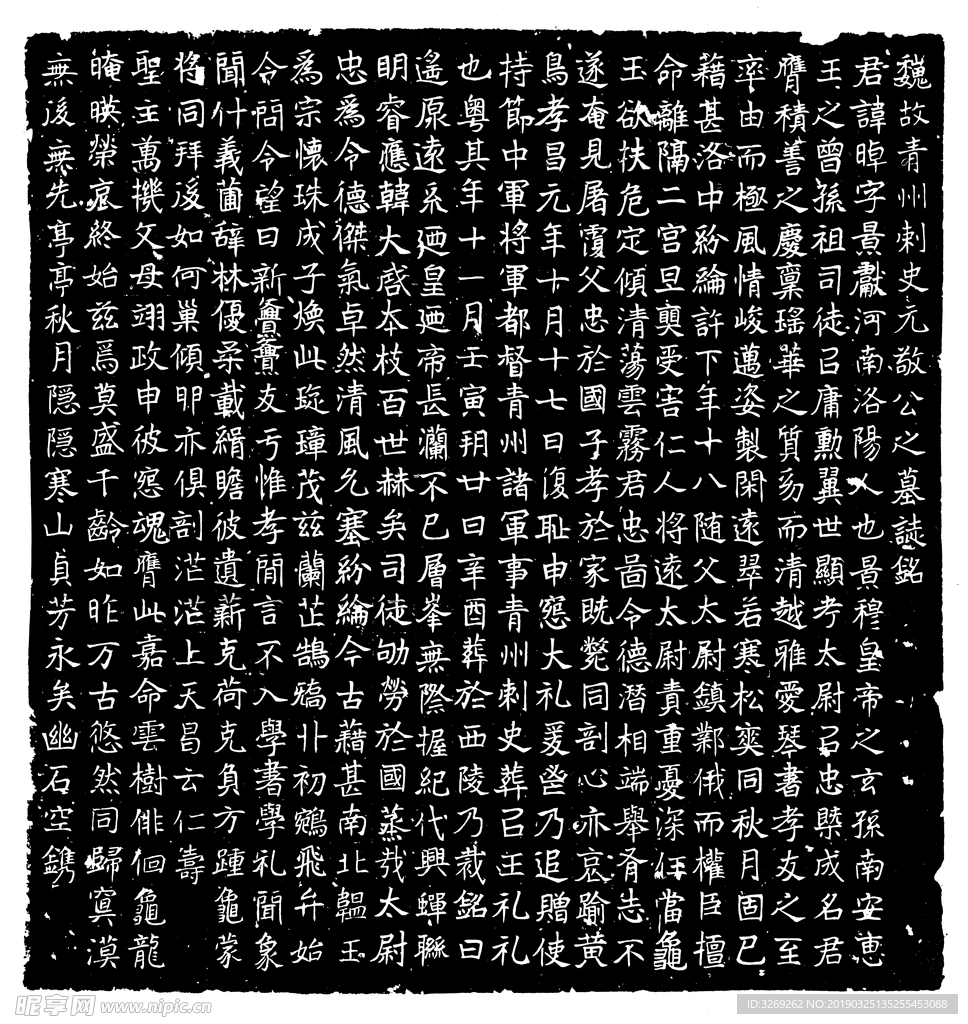 魏故青州刺史元敬公之墓誌銘
君諱暐字景獻河南洛陽人也景穆皇帝之玄孫南安惠
王之曾孫祖司徒㠯庸勳翼世顯考太尉㠯忠槩成名君
膺積善之慶稟瑤華之質㓜而清越雅愛琴書孝友之至
率由而極風情峻邁姿製閑遠翠若寒松奕同秋月固已
藉甚洛中紛綸許下年十八随父太尉鎮鄴俄而權臣擅
命離隔二宮旦奭受害仁人將遠太尉責重憂深任當龜
玉欲扶危定傾清蕩雲霧君忠啚令德潛相端舉脊志不
遂奄見屠覆父忠於國子孝於家既斃同剖心亦哀踰黃
鳥孝昌元年十月十七日復耻申窓大礼爰啓乃追贈使
持節中軍將軍都督青州諸軍事青州刺史葬㠯王礼礼
也粤其年十一月壬寅朔廿日辛酉葬於西陵乃裁銘曰
遙原遠系廼皇廼帝長瀾不已層峯無際握紀代興蟬聯
明睿應韓大啓本枝百世赫矣司徒劬勞於國蒸哉太尉
忠爲令德傑氣卓然清風允塞紛綸今古藉甚南北韞玉
爲宗懷珠成子煥此琁璋茂兹蘭芷鵠矯丱初鵷飛弁始
令問令望日新亹亹友亏惟孝閒言不入學書學礼聞象
聞什義菌辭林優柔載緝瞻彼遺薪克荷克負方踵龜蒙
將同拜後如何巢傾卵亦俱剖茫茫上天昌云仁壽
聖主萬機父母翊政申彼窓魂膺此嘉命雲樹俳佪龜龍
晻暎榮哀終始兹焉莫盛千齡如昨万古悠然同歸寞漠
無後無先亭亭秋月隠隠寒山貞芳永矣幽石空鐫
昵享网 www.nipic.cn
ID:3269262 NO:20190325135255453088